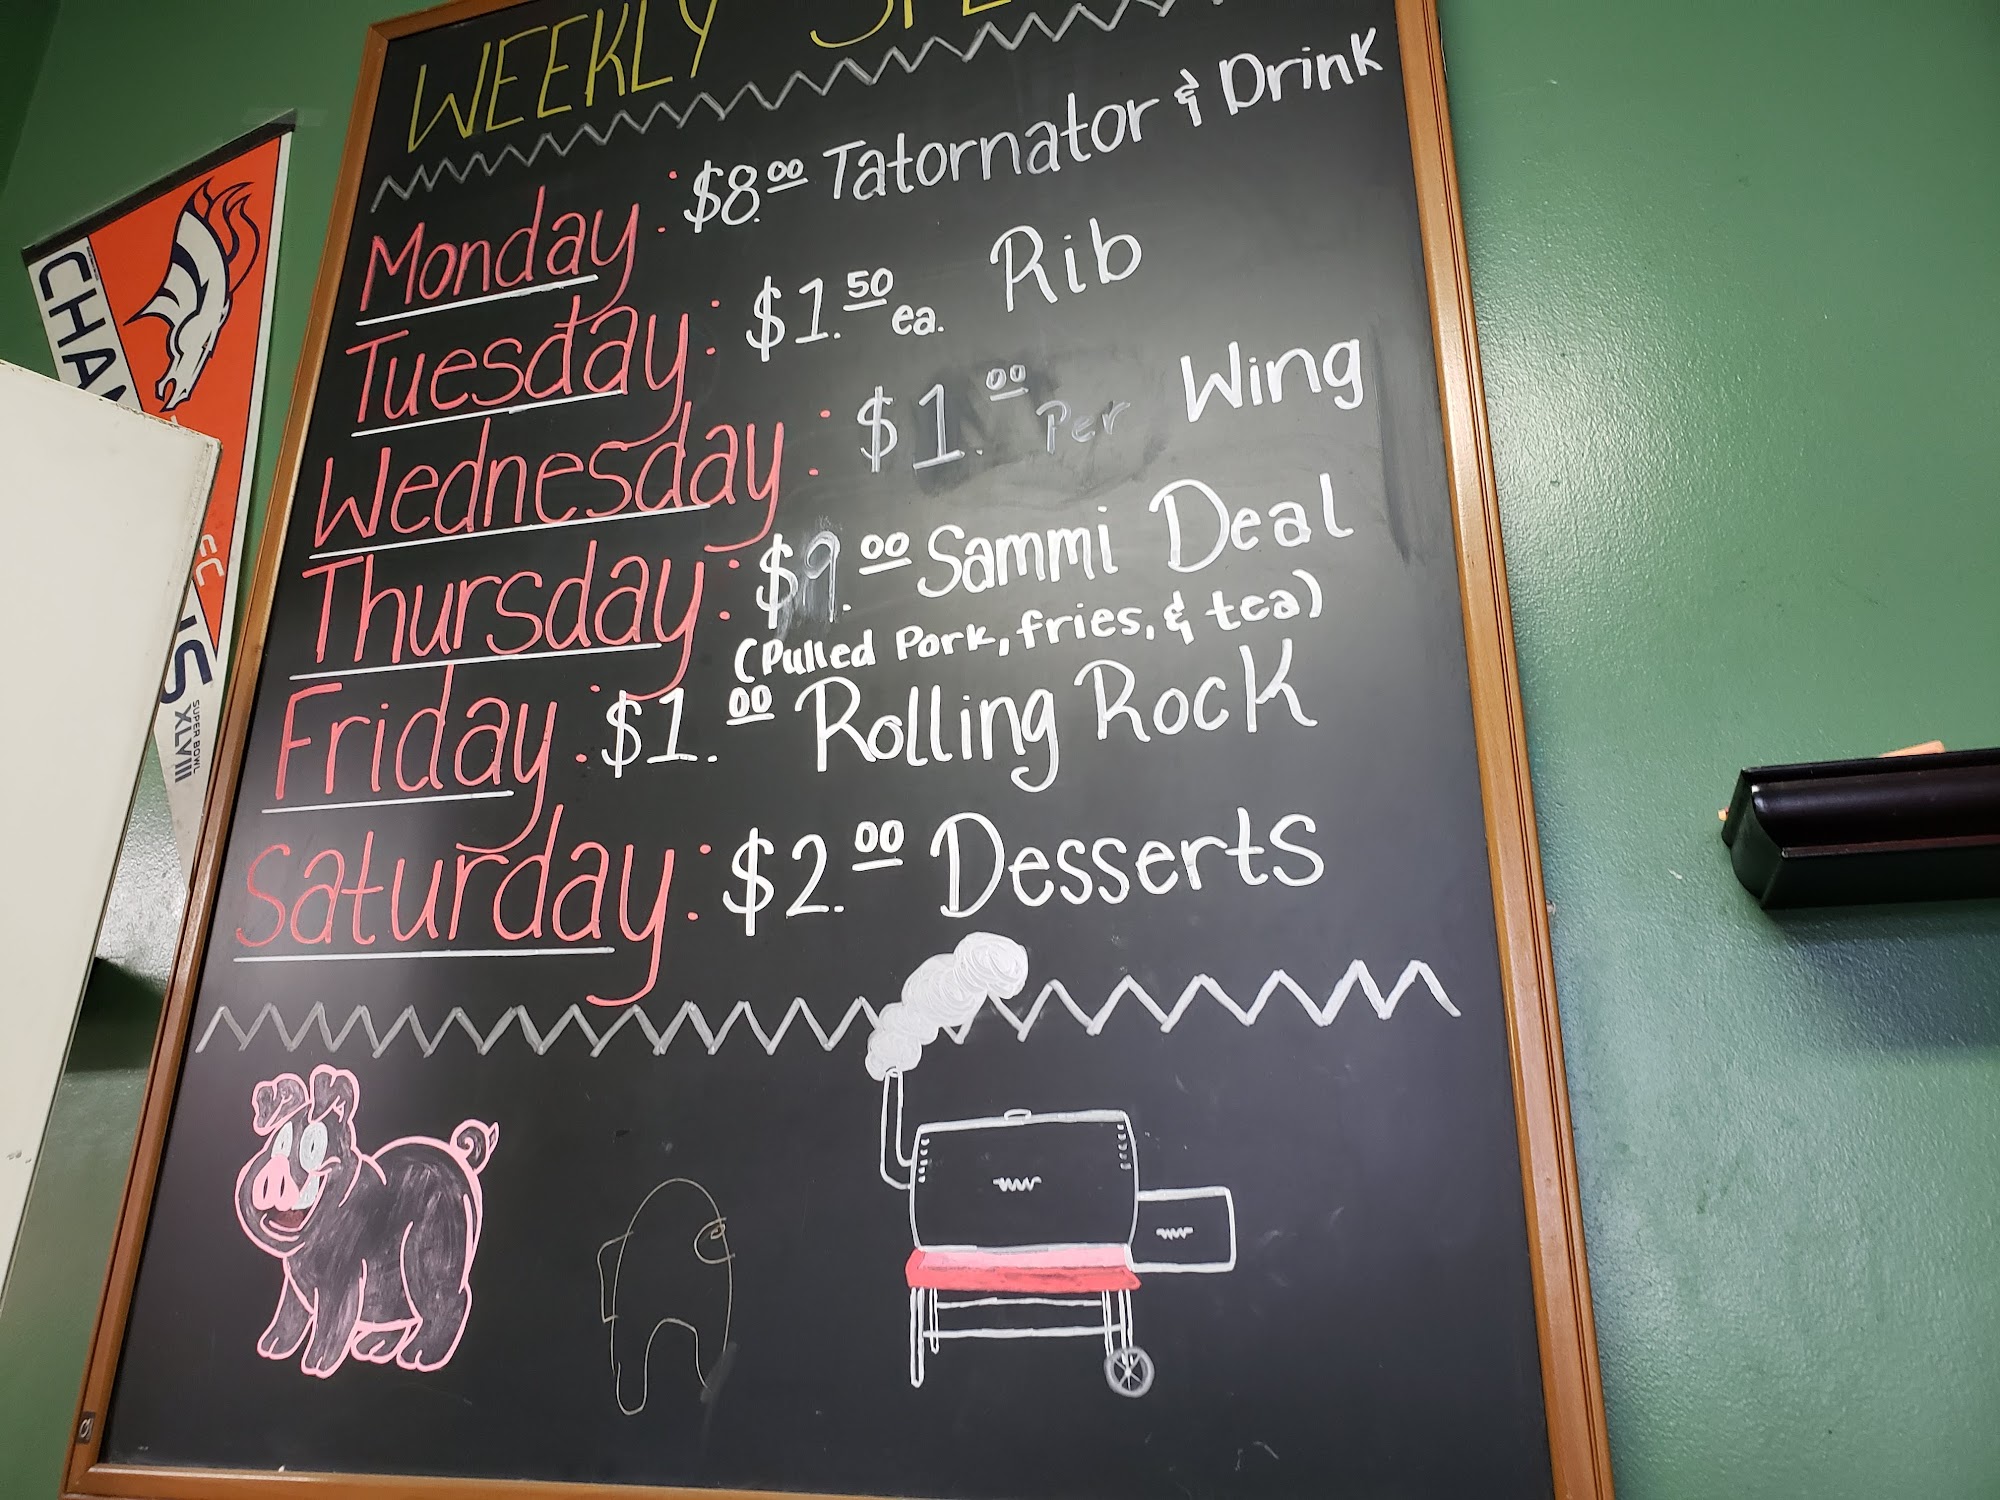 WEEKLY
Monday: $8.00 Tatornator & Drink
Tuesday: $1.50 ea. Rib
Wednesday: $1.00 Per Wing
Thursday: $9.00 Sammi Deal
(Pulled Pork, fries, & tea)
Friday: $1.00 Rolling Rock
Saturday: $2.00 Desserts
SUPER BOWL
XLVIII